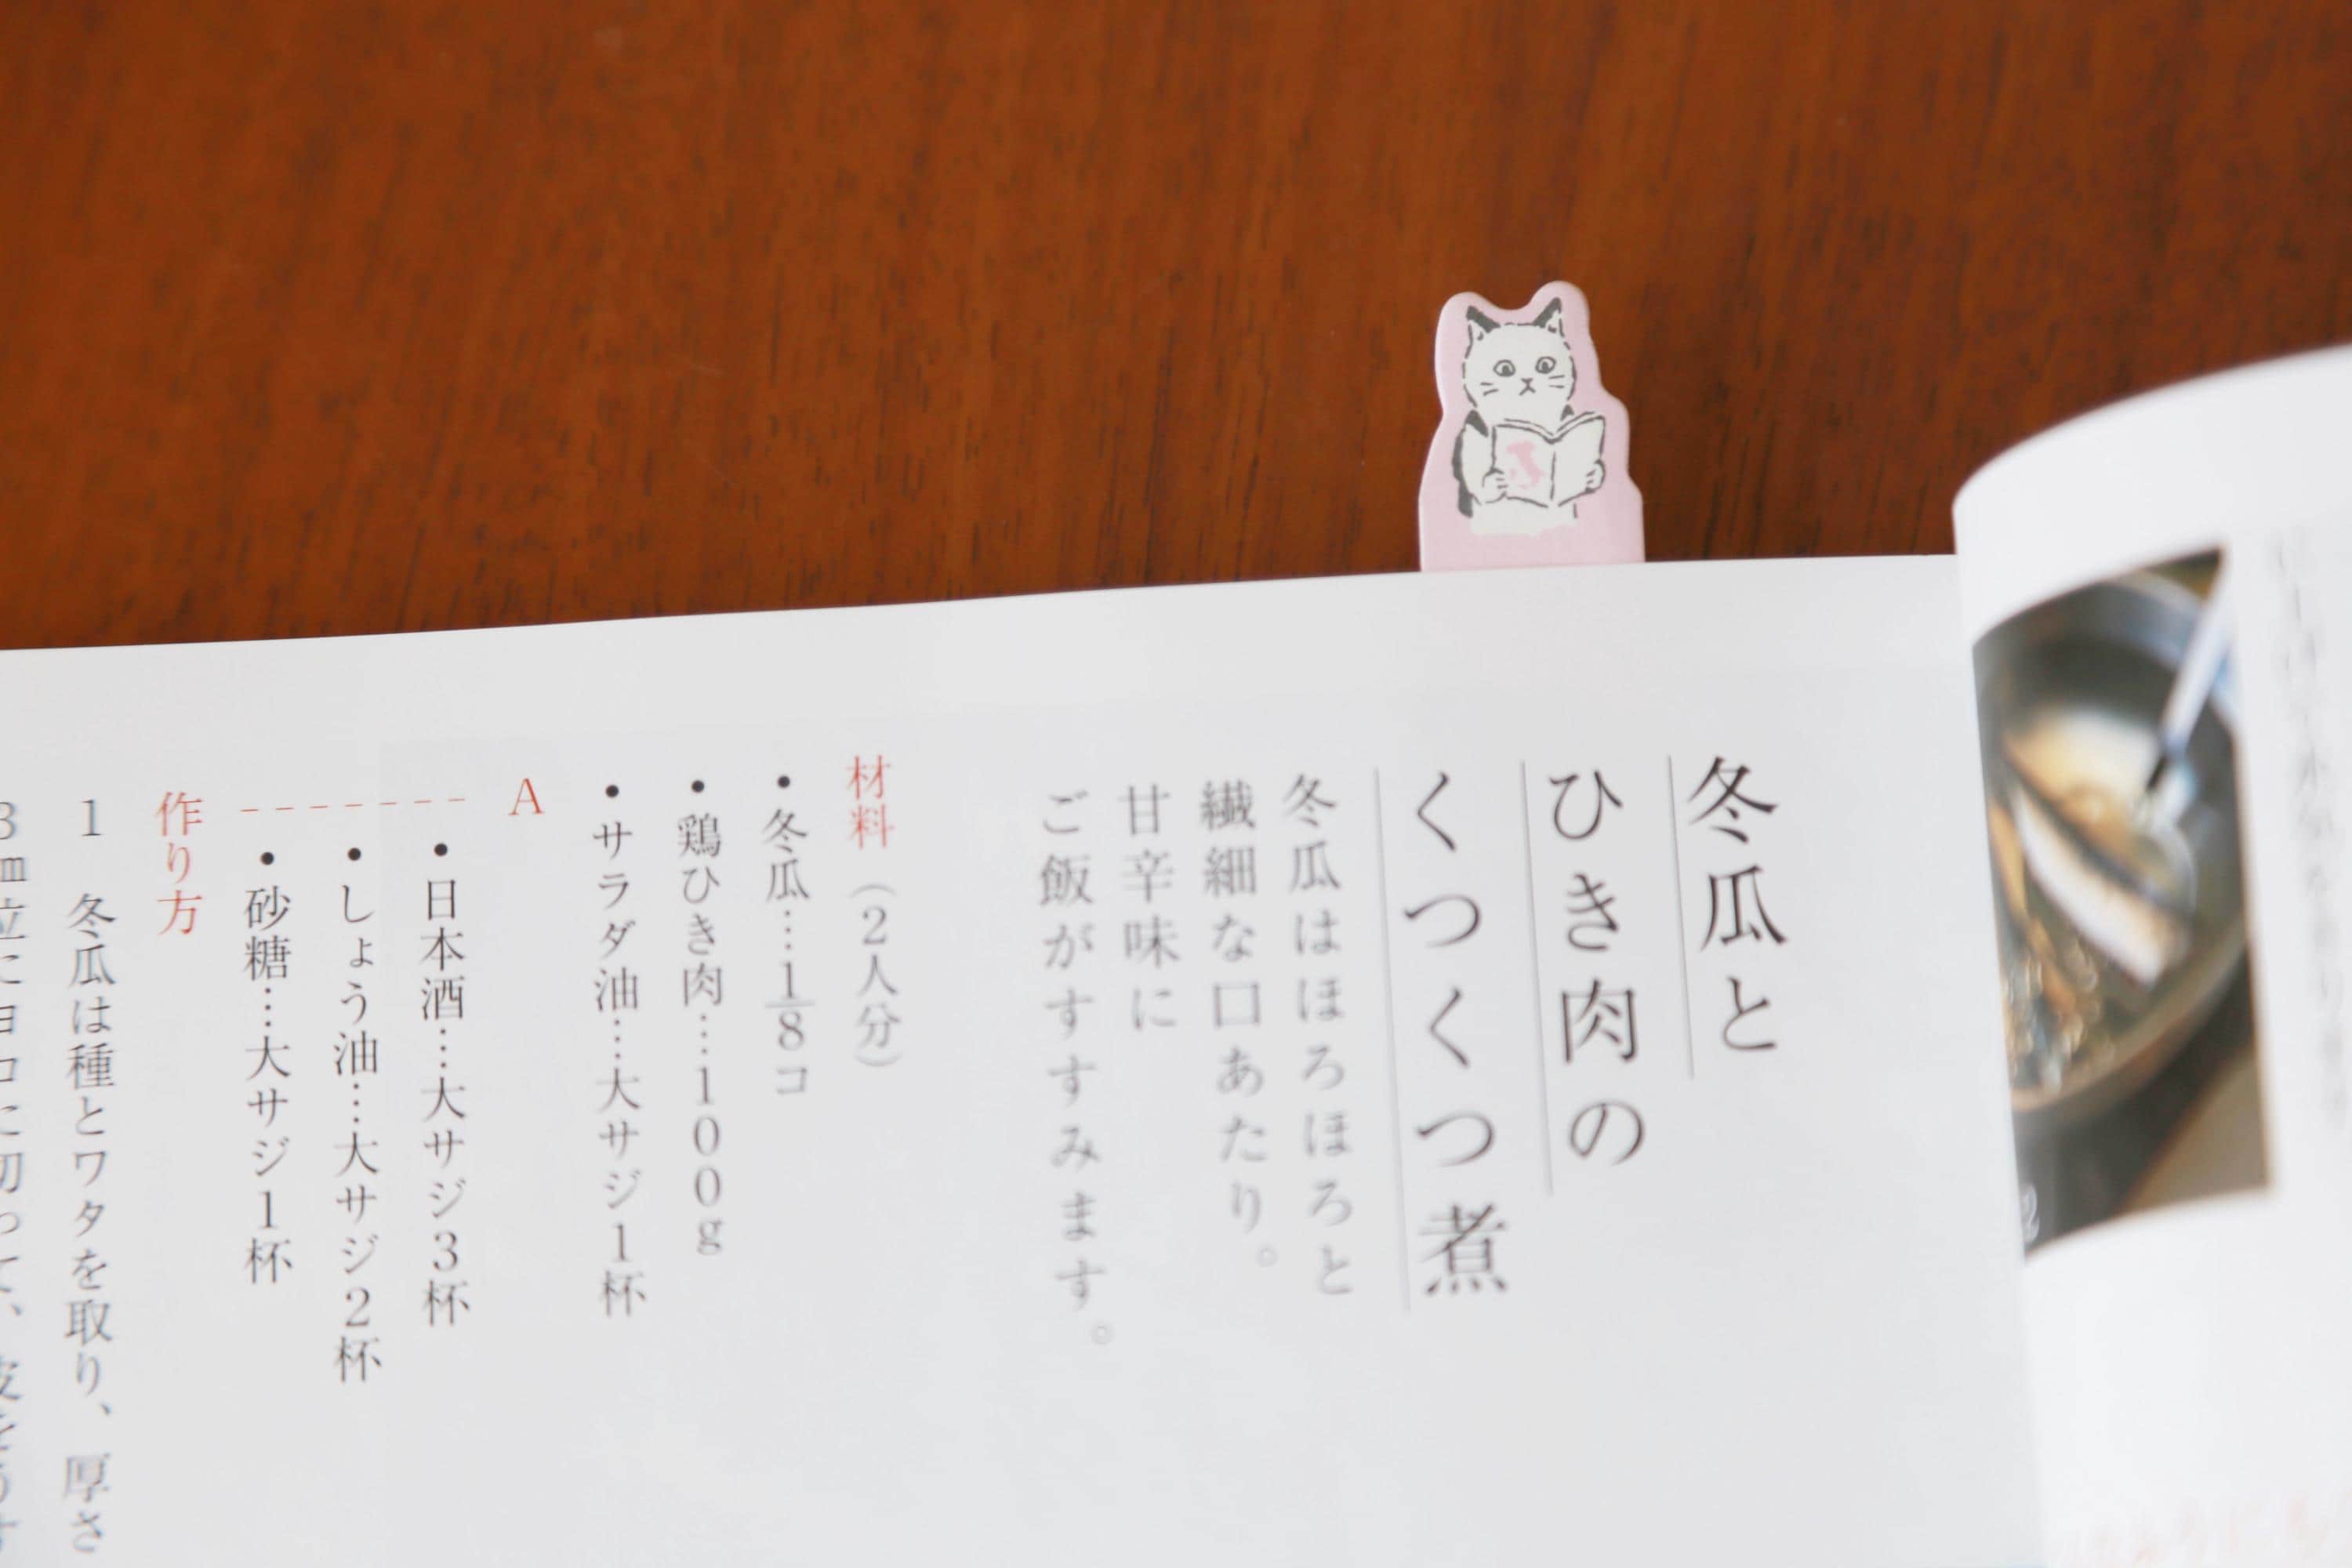 冬瓜と
ひき肉の
くつくつ煮
冬瓜はほろほろと
繊細な口あたり。
甘辛味に
ご飯がすすみます。
材料（2人分）
・冬瓜…1/8コ
・鶏ひき肉…100g
・サラダ油…大サジ1杯
A
・日本酒…大サジ3杯
・しょう油…大サジ2杯
・砂糖…大サジ1杯
作り方
1 冬瓜は種とワタを取り、厚さ